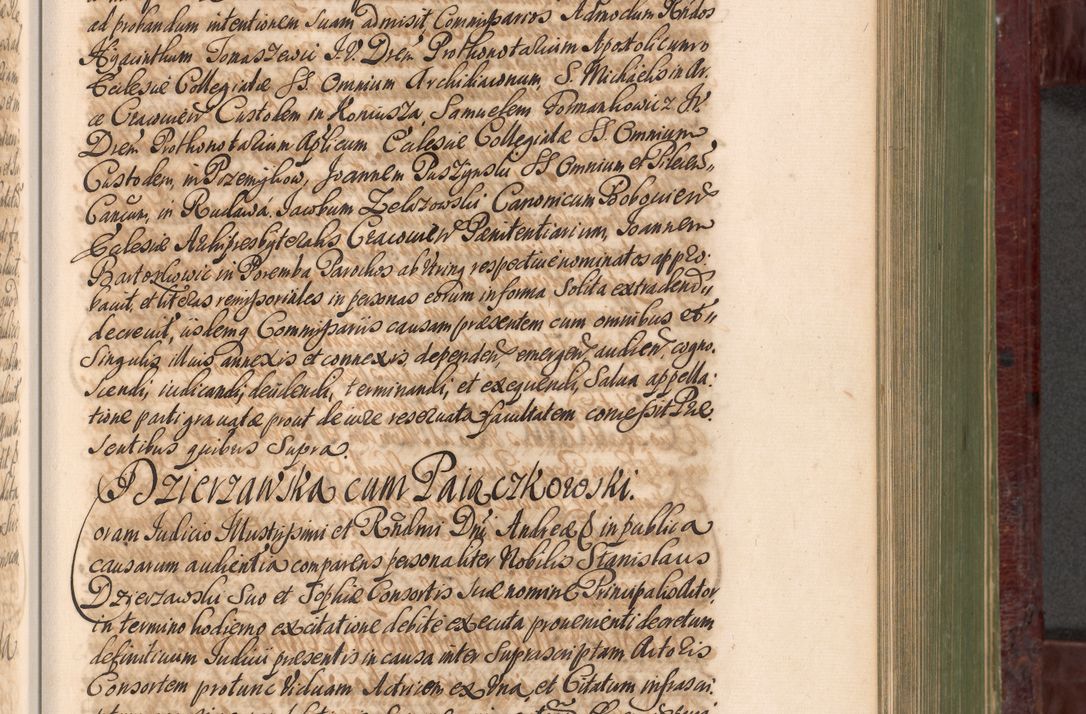 ad probandum intentionem suam admisit Commissarios Admodum Rndos
Hyacinthum Tomaszewic J. V. Drem Prothonotarium Apostolicum
Ecclesiæ Collegiatæ SS. Omnium Archidiaconum, S. Michaelis in Ar,
ce Cracovien Custodem in Koniusza, Samuelem Formankowicz JV
Drem Prothonotarium Aplicum Ecclesiæ Collegiatæ SS. Omnium
Custodem, in Przemykow, Joannem Paszynski SS Omnium et Pileens,,
Canćum, in Rudawá, Jacobum Zelazowski Canonicum Bobovien
Ecclesiæ Archipresbyteralis Cracovien Pænitentiarium, Joannem
Bartoszkowic in Poremba Parochos ab utrinq respective nominatos appro:
bavit, et literas remissoriales in personas eorum in forma solita extradend,,
decrevit, iisdemq Commissariis causam præsentem cum omnibus et,,
Singulis illius annexis et connexis, dependen, emergen, audien, cogno:
scendi, iudicandi, decidendi, terminandi, et exequendi, Salva appella:
tione parti gravatæ prout de iure reservata facultatem concessit Præ
sentibus quibus Supra.
Dzierzawska cum Paiączkowski.
oram Judicio Illustrissimi et Rndmi Dni Andreæ E in publica
causarum audientia comparens personaliter Nobilis Stanislaus
Dzierzawski Suo et Sophiæ Consortis suæ nomine Principalis Actor
in termino hodierno ex citatione debite executa provenienti decretum
definitivum Judicii præsentis in causa inter Suprascriptam Actoris
Consortem protunc Viduam Actricem ex Una, et Citatum infrascri: